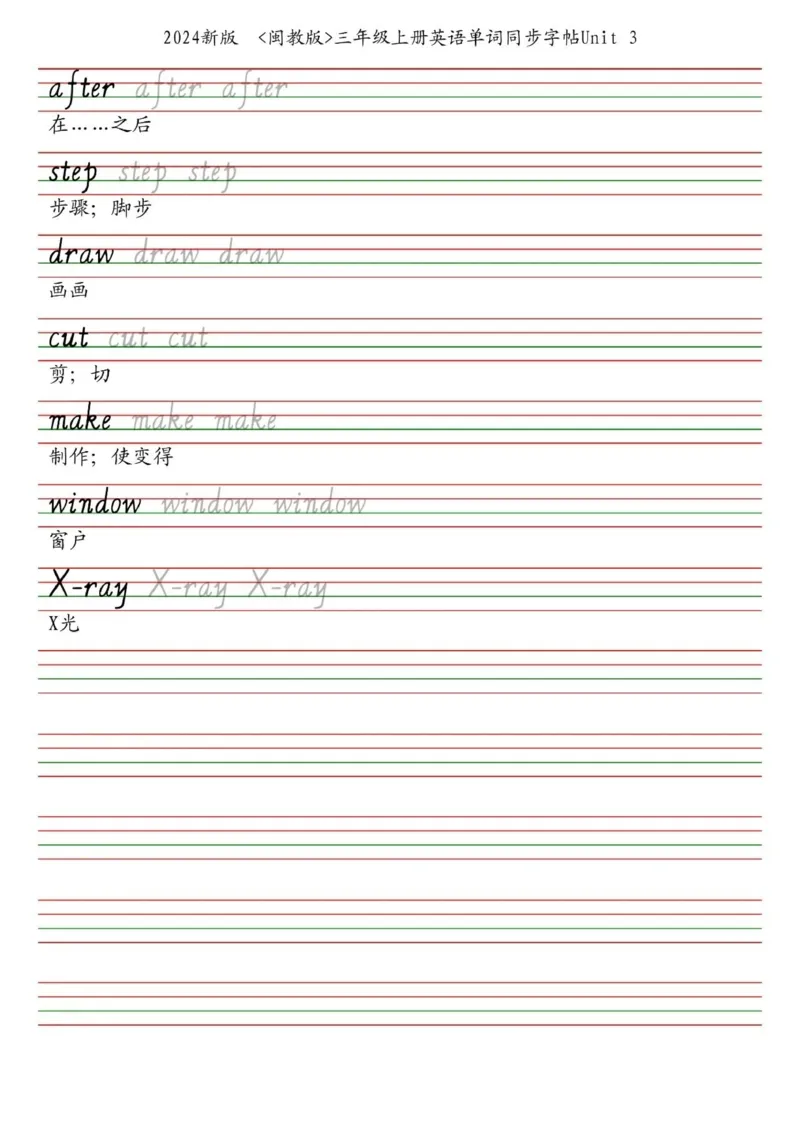 2024新版 <闽教版>三年级上册英语单词同步字帖Unit 3
after after after
在……之后
step step step
步骤；脚步
draw draw draw
画画
cut cut cut
剪；切
make make make
制作；使变得
window window window
窗户
X-ray X-ray X-ray
X光